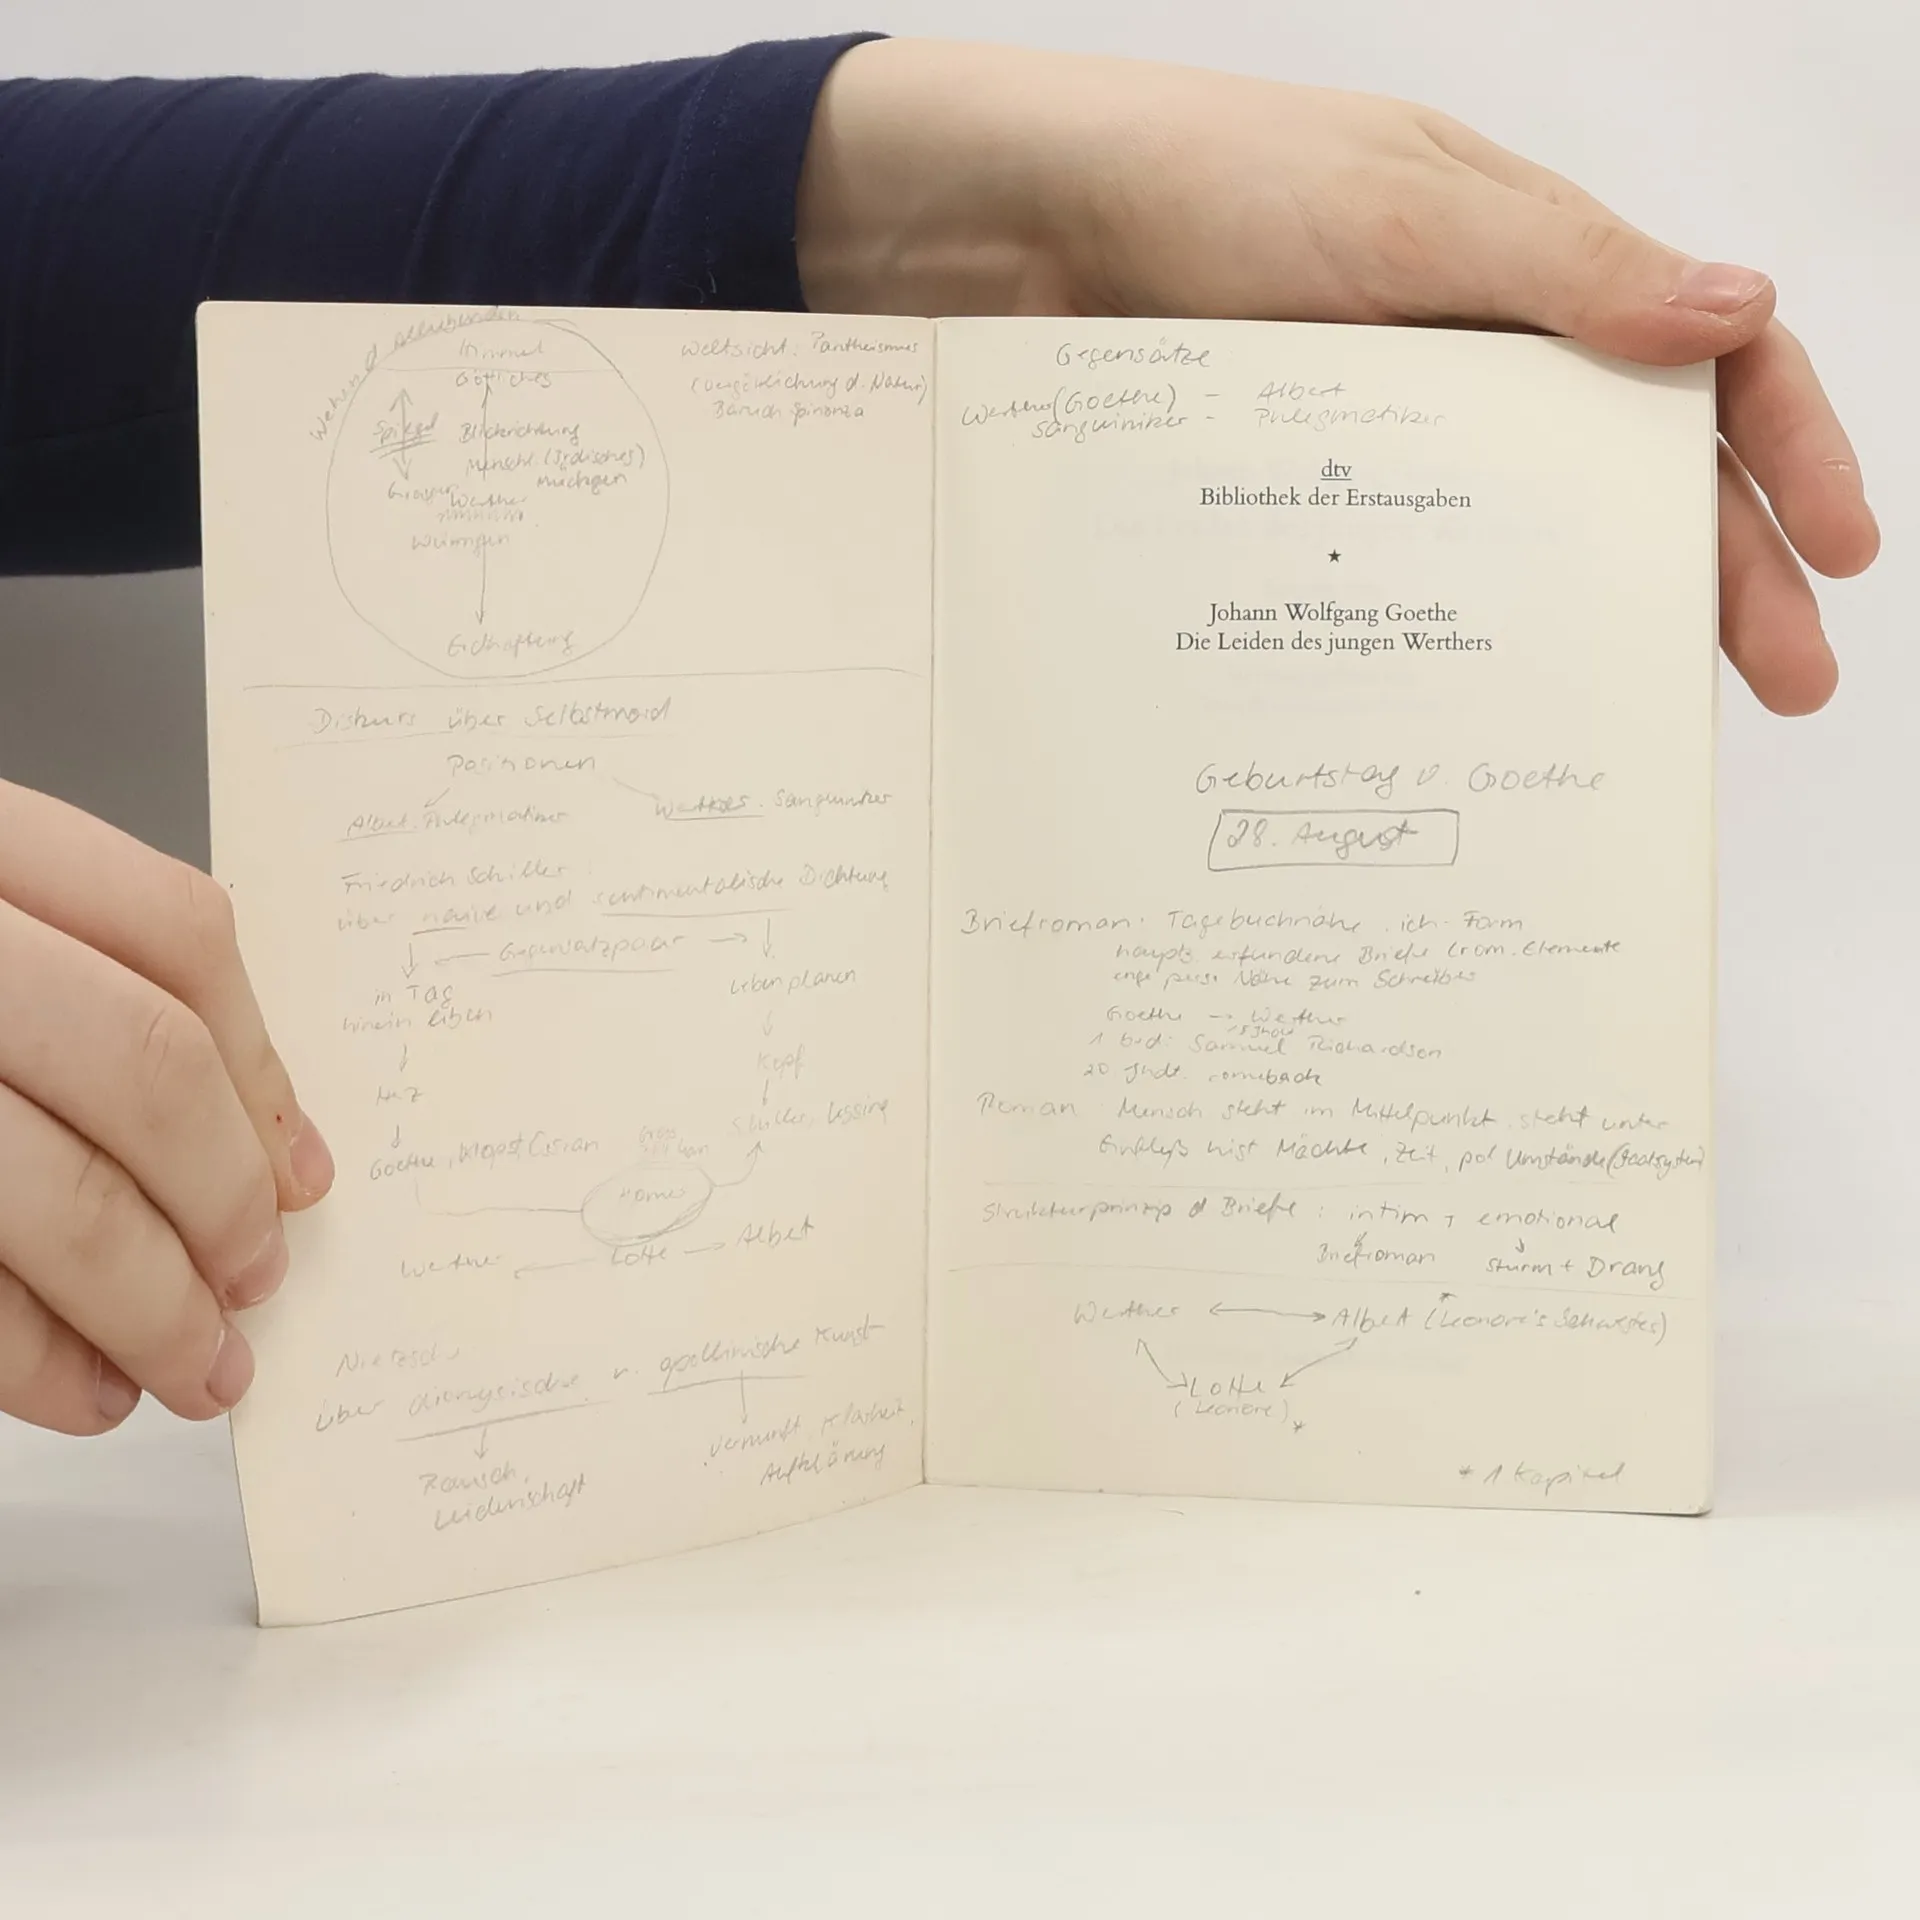 Wehen d
Himmel
Göttliches
Spiegel
Blickrichtung
Menschl. (Irdisches)
Werther
Erdhaftung
Weltsicht: Pantheismus
(Vergöttlichung d. Natur)
Baruch Spinoza
Diskurs über Selbstmord
Positionen
Albert. Phlegmatiker
Werther. Sanguiniker
Friedrich Schiller:
über naive und sentimentalische Dichtung
Gegensatzpaar
in Tag
hinein leben
Leben planen
Kopf
Herz
Schiller, Lessing
Goethe, Ossian
Homer
Werther Lotte Albert
Nietzsche
über dionysische u. apollinische Kunst
Rausch,
Leidenschaft
Vernunft, Klarheit,
Aufklärung
Gegensätze
Werther (Goethe) - Albert
Sanguiniker - Phlegmatiker
dtv
Bibliothek der Erstausgaben
Johann Wolfgang Goethe
Die Leiden des jungen Werthers
Geburtstag v. Goethe
28. August
Briefroman: Tagebuchnähe, ich-Form
haupts. erfundene Briefe (rom. Elemente
enge pers. Nähe zum Schreiber
Goethe → Werther
Samuel Richardson
20 Jhdt. comeback
Roman: Mensch steht im Mittelpunkt, steht unter
Einfluß Mächte, Zeit, pol Umstände
Strukturprinzip d Briefe: intim + emotional
Briefroman Sturm + Drang
Werther Albert (Leonore's Schwester)
Lotte
(Leonore) *
* 1 Kapitel